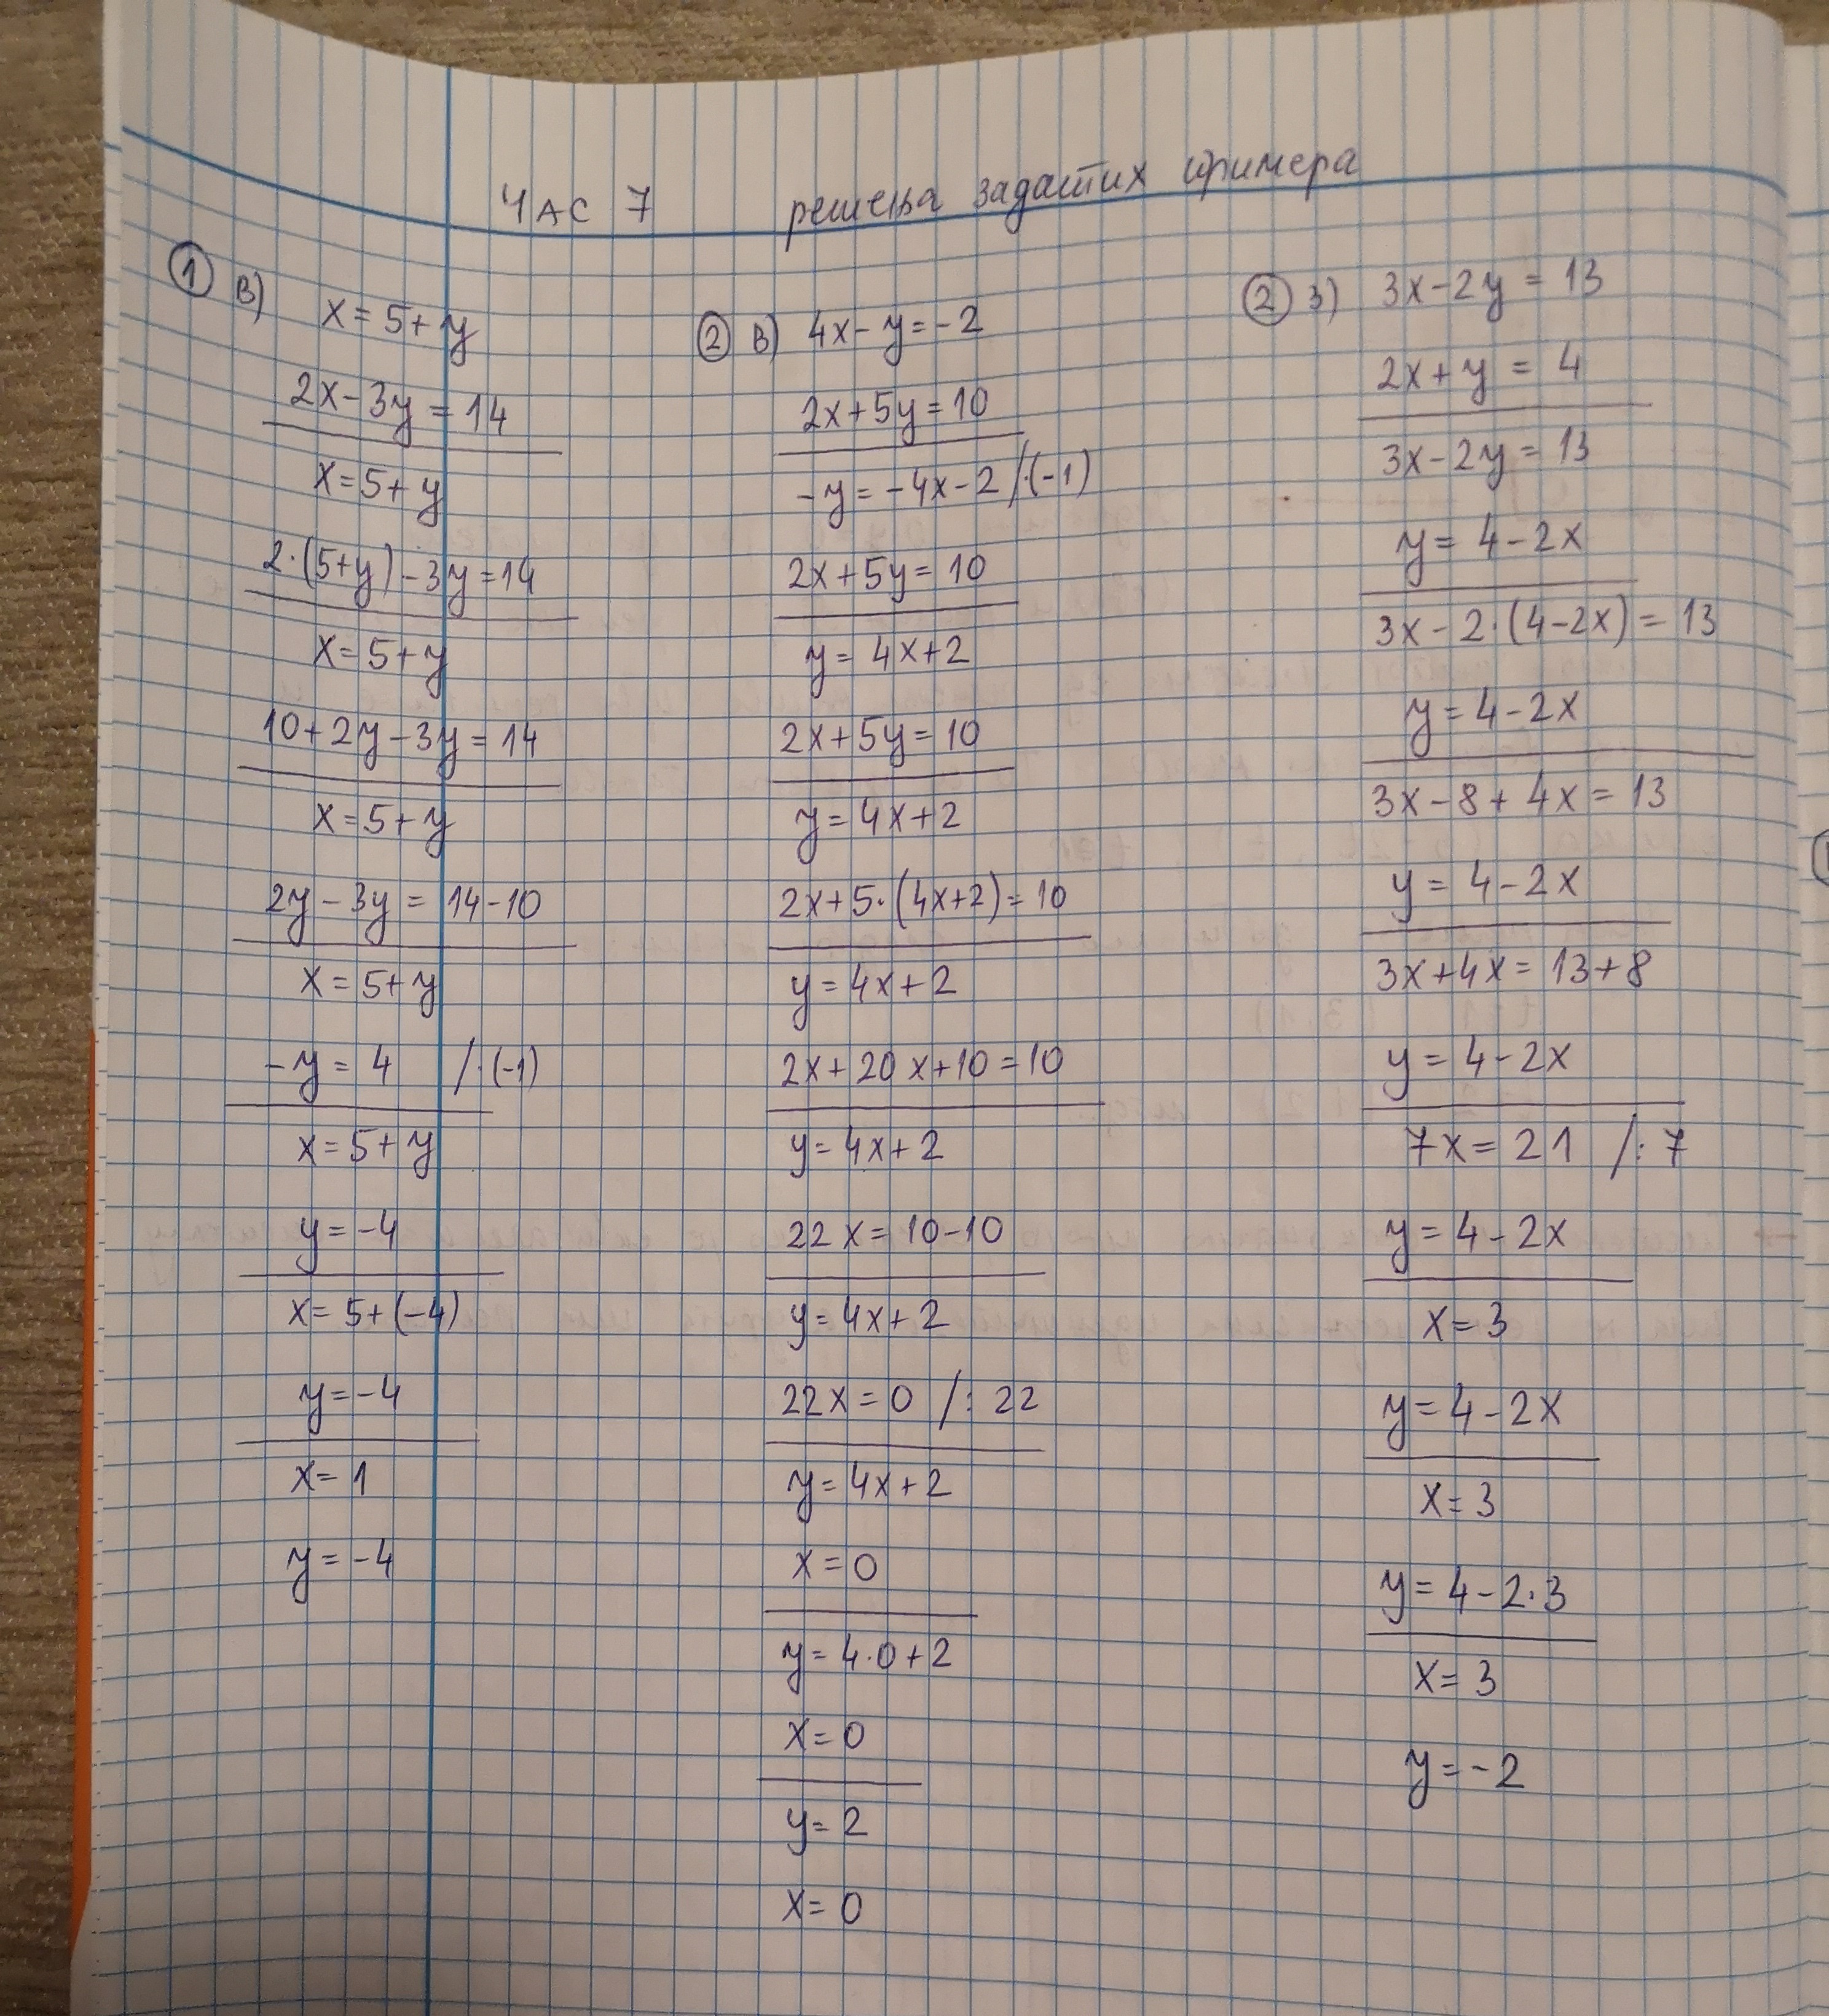 ЧАС 7 решења задатих примера
① в) x = 5 + y
2x - 3y = 14
x = 5 + y
2·(5+y) - 3y = 14
x = 5 + y
10 + 2y - 3y = 14
x = 5 + y
2y - 3y = 14 - 10
x = 5 + y
-y = 4 /·(-1)
x = 5 + y
y = -4
x = 5 + (-4)
y = -4
x = 1
y = -4
② в) 4x - y = -2
2x + 5y = 10
-y = -4x - 2 /·(-1)
2x + 5y = 10
y = 4x + 2
2x + 5y = 10
y = 4x + 2
2x + 5·(4x+2) = 10
y = 4x + 2
2x + 20x + 10 = 10
y = 4x + 2
22x = 10 - 10
y = 4x + 2
22x = 0 /: 22
y = 4x + 2
x = 0
y = 4·0 + 2
x = 0
y = 2
x = 0
② з) 3x - 2y = 13
2x + y = 4
3x - 2y = 13
y = 4 - 2x
3x - 2·(4-2x) = 13
y = 4 - 2x
3x - 8 + 4x = 13
y = 4 - 2x
3x + 4x = 13 + 8
y = 4 - 2x
7x = 21 /: 7
y = 4 - 2x
x = 3
y = 4 - 2x
x = 3
y = 4 - 2·3
x = 3
y = -2